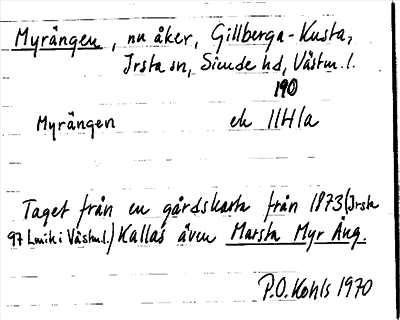 Myrängen, nu åker, Gillberga-Kusta,
Irsta sn, Siende hd, Västm. l.
190
Myrängen ek 11H1a
Taget från en gårdskarta från 1873 (Irsta
97 Lmk i Västm.l.) Kallas även Marsta Myr Äng.
P.O. Kohls 1970